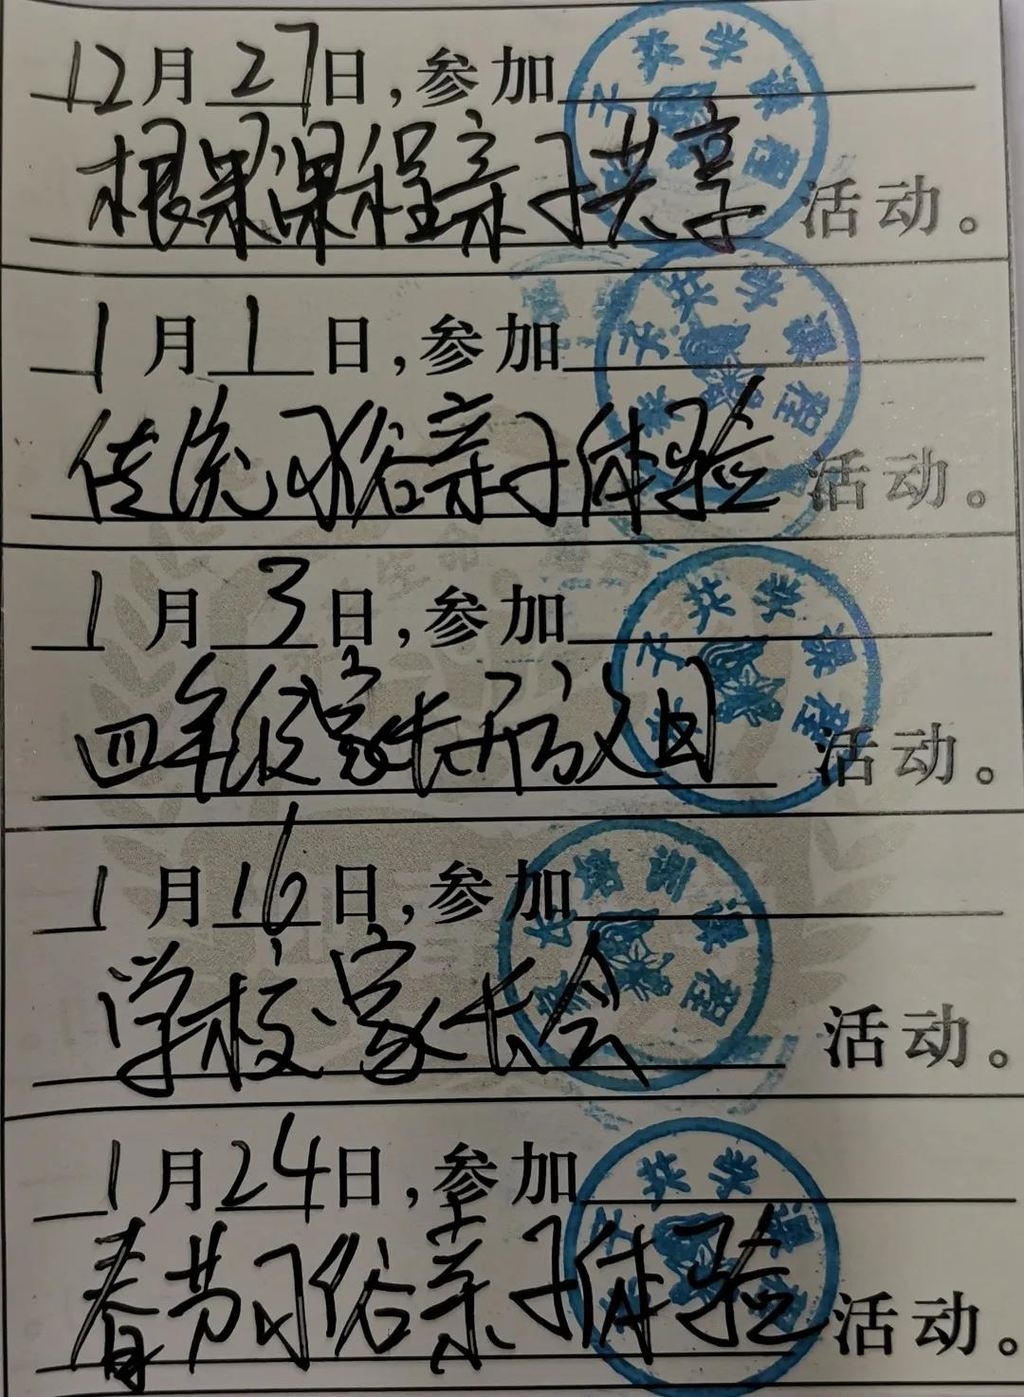 12月27日,参加
根系课程亲子共享活动。
1月1日,参加
传统习俗亲子体验活动。
1月3日,参加
四年级家长开放日活动。
1月16日,参加
学校家长会活动。
1月24日,参加
春节习俗亲子体验活动。